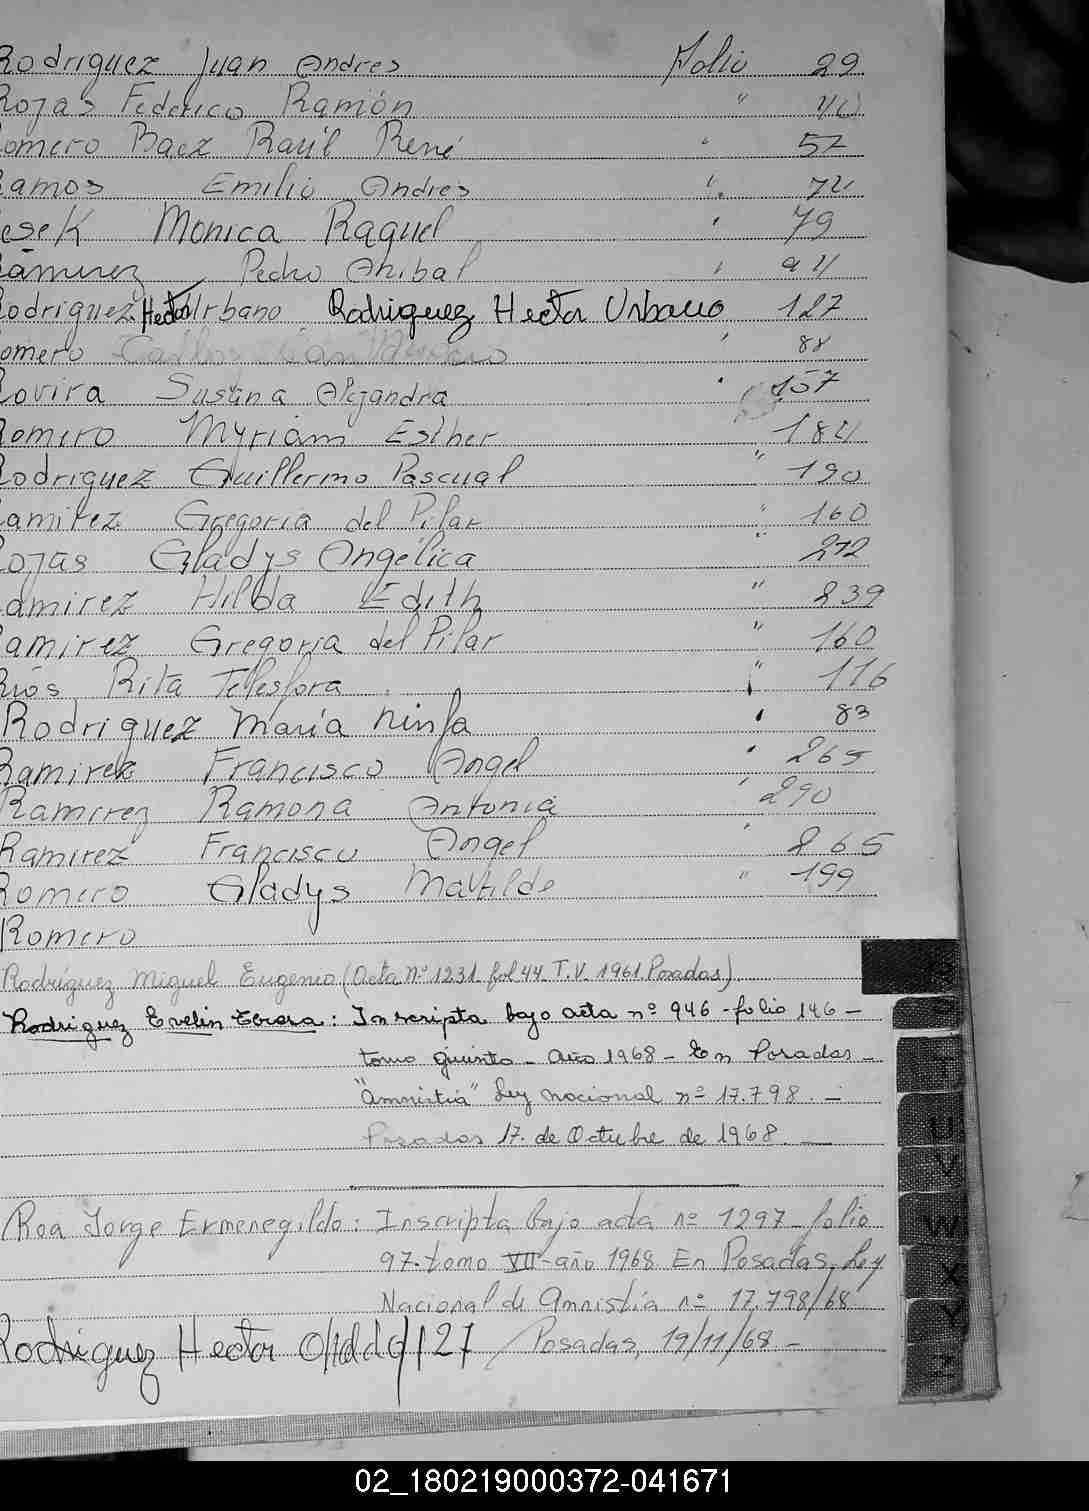 Rodriguez Juan Andres Folio 29
Rojas Federico Ramón " 40
Romero Baez Raúl René " 57
Ramos Emilio Andres " 74
esek Monica Raquel " 79
Ramirez Pedro Anibal " 94
Rodriguez Hector Urbano Rodriguez Hector Urbano 127
omero Carlos " 88
Rovira Susana Alejandra " 157
Romero Myriam Esther 184
Rodriguez Guillermo Pascual " 190
amirez Gregoria del Pilar " 160
ojas Gladys Angélica " 272
amirez Hilda Edith " 239
amirez Gregoria del Pilar " 160
Rios Rita Telesfora " 116
Rodriguez María Ninfa " 83
Ramirez Francisco Angel " 265
Ramirez Ramona Antonia " 290
Ramirez Francisco Angel " 265
Romero Gladys Matilde " 199
Romero
Rodríguez Miguel Eugenio (Acta Nº 1231. fol 44 T. V. 1961. Posadas)
Rodriguez Evelin Teresa: Inscripta bajo acta nº 946 - folio 146 -
tomo quinto - Año 1968 - En Posadas -
"Amnistia" Ley nacional nº 17.798. -
Posadas 17. de Octubre de 1968. -
Roa Jorge Ermenegildo: Inscripta bajo acta nº 1297 - folio
97. tomo VII - año 1968 En Posadas, Ley
Nacional de Amnistía nº 17.798/68
Rodriguez Hector 127 / Posadas, 19/11/68 -
U
V
W
X
Y
Z
02_180219000372-041671